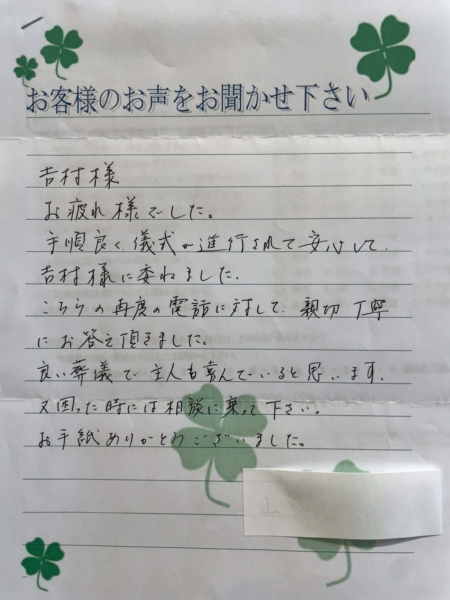 お客様のお声をお聞かせ下さい
吉村様
お疲れ様でした。
手順良く、儀式が進行されて安心して、
吉村様に委ねました。
こちらの再度の電話に対して、親切丁寧
にお答え頂きました。
良い葬儀で主人も喜んでいると思います。
又困った時には相談に乗って下さい。
お手紙ありがとうございました。